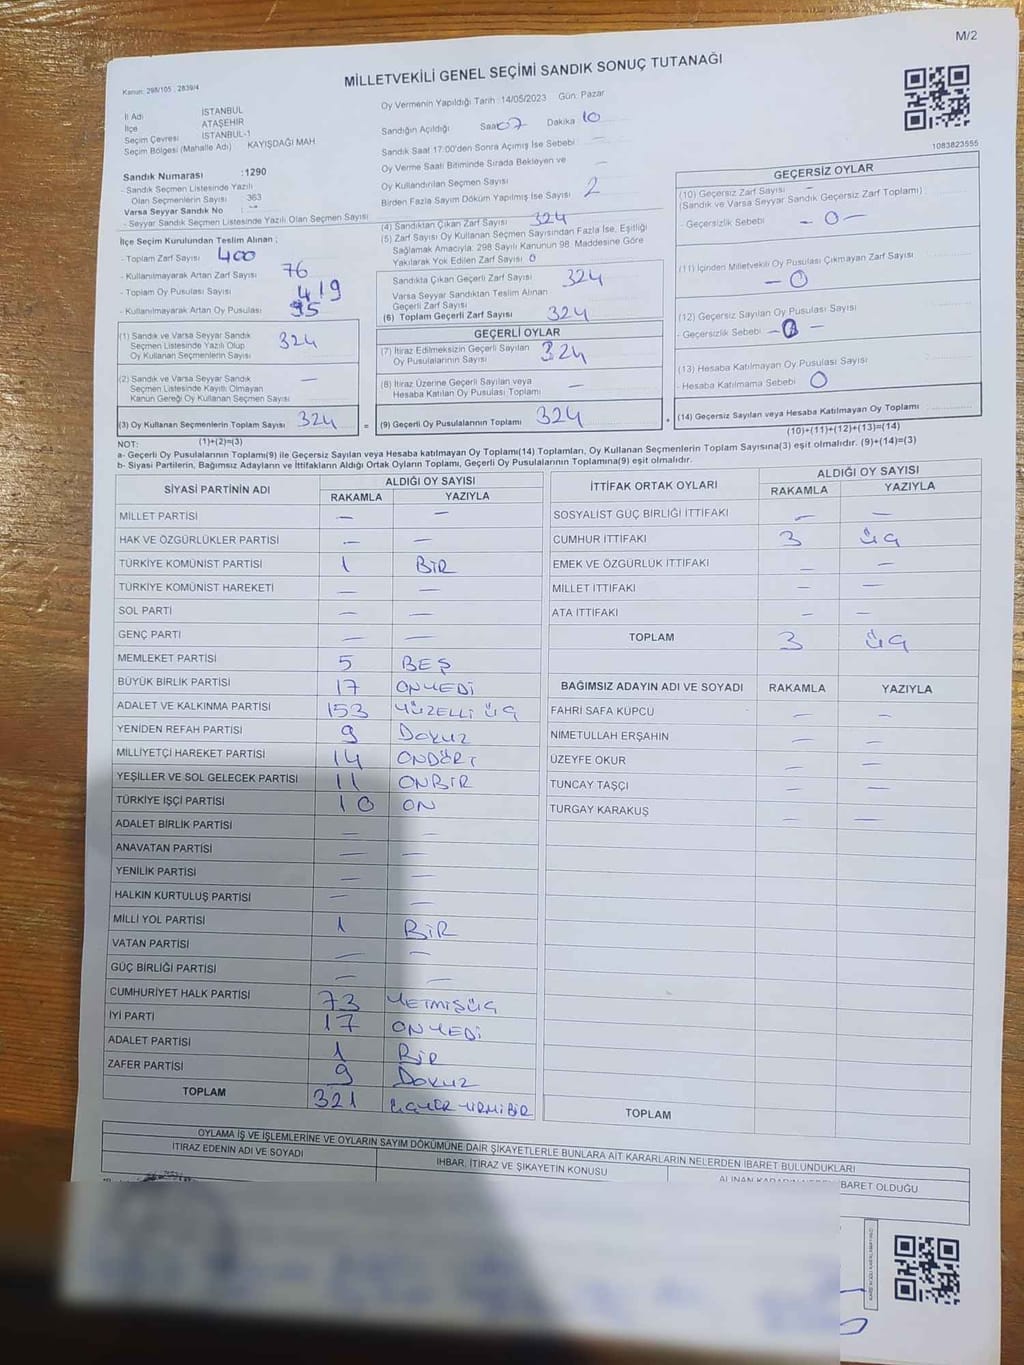 M/2
Kanun: 298/105 , 2839/4
MİLLETVEKİLİ GENEL SEÇİMİ SANDIK SONUÇ TUTANAĞI
İl Adı İSTANBUL
İlçe ATAŞEHİR
Seçim Çevresi İSTANBUL-1
Seçim Bölgesi (Mahalle Adı) KAYIŞDAĞI MAH
Oy Vermenin Yapıldığı Tarih :14/05/2023 Gün: Pazar
Sandığın Açıldığı Saat 07 Dakika 10
Sandık Saat 17:00'den Sonra Açımış İse Sebebi : —
Oy Verme Saati Bitiminde Sırada Bekleyen ve
Oy Kullandırılan Seçmen Sayısı —
Birden Fazla Sayım Döküm Yapılmış İse Sayısı 2
1083823555
Sandık Numarası :1290
- Sandık Seçmen Listesinde Yazılı
Olan Seçmenlerin Sayısı : 363
Varsa Seyyar Sandık No : --
- Seyyar Sandık Seçmen Listesinde Yazılı Olan Seçmen Sayısı
İlçe Seçim Kurulundan Teslim Alınan ;
- Toplam Zarf Sayısı 400
- Kullanılmayarak Artan Zarf Sayısı 76
- Toplam Oy Pusulası Sayısı 419
- Kullanılmayarak Artan Oy Pusulası 95
(1) Sandık ve Varsa Seyyar Sandık
Seçmen Listesinde Yazılı Olup
Oy Kullanan Seçmenlerin Sayısı 324
(2) Sandık ve Varsa Seyyar Sandık
Seçmen Listesinde Kayıtlı Olmayan
Kanun Gereği Oy Kullanan Seçmen Sayısı —
(3) Oy Kullanan Seçmenlerin Toplam Sayısı 324
(4) Sandıktan Çıkan Zarf Sayısı 324
(5) Zarf Sayısı Oy Kullanan Seçmen Sayısından Fazla İse, Eşitliği
Sağlamak Amacıyla; 298 Sayılı Kanunun 98. Maddesine Göre
Yakılarak Yok Edilen Zarf Sayısı 0
Sandıkta Çıkan Geçerli Zarf Sayısı 324
Varsa Seyyar Sandıktan Teslim Alınan
Geçerli Zarf Sayısı
(6) Toplam Geçerli Zarf Sayısı 324
GEÇERLİ OYLAR
(7) İtiraz Edilmeksizin Geçerli Sayılan
Oy Pusulalarının Sayısı 324
(8) İtiraz Üzerine Geçerli Sayılan veya
Hesaba Katılan Oy Pusulası Toplamı —
= (9) Geçerli Oy Pusulalarının Toplamı 324
GEÇERSİZ OYLAR
(10) Geçersiz Zarf Sayısı —
(Sandık ve Varsa Seyyar Sandık Geçersiz Zarf Toplamı) :
- Geçersizlik Sebebi — 0 —
(11) İçinden Milletvekili Oy Pusulası Çıkmayan Zarf Sayısı
— 0
(12) Geçersiz Sayılan Oy Pusulası Sayısı
- Geçersizlik Sebebi — 0 —
(13) Hesaba Katılmayan Oy Pusulası Sayısı
- Hesaba Katılmama Sebebi 0
+ (14) Geçersiz Sayılan veya Hesaba Katılmayan Oy Toplamı
NOT: (1)+(2)=(3) (10)+(11)+(12)+(13)=(14)
a- Geçerli Oy Pusulalarının Toplamı(9) ile Geçersiz Sayılan veya Hesaba katılmayan Oy Toplamı(14) Toplamları, Oy Kullanan Seçmenlerin Toplam Sayısına(3) eşit olmalıdır. (9)+(14)=(3)
b- Siyasi Partilerin, Bağımsız Adayların ve İttifakların Aldığı Ortak Oyların Toplamı, Geçerli Oy Pusulalarının Toplamına(9) eşit olmalıdır.
SİYASİ PARTİNİN ADI ALDIĞI OY SAYISI
RAKAMLA YAZIYLA
MİLLET PARTİSİ — —
HAK VE ÖZGÜRLÜKLER PARTİSİ — —
TÜRKİYE KOMÜNİST PARTİSİ 1 BİR
TÜRKİYE KOMÜNİST HAREKETİ — —
SOL PARTİ — —
GENÇ PARTİ — —
MEMLEKET PARTİSİ 5 BEŞ
BÜYÜK BİRLİK PARTİSİ 17 ONYEDİ
ADALET VE KALKINMA PARTİSİ 153 YÜZELLİ ÜÇ
YENİDEN REFAH PARTİSİ 9 DOKUZ
MİLLİYETÇİ HAREKET PARTİSİ 14 ONDÖRT
YEŞİLLER VE SOL GELECEK PARTİSİ 11 ONBİR
TÜRKİYE İŞÇİ PARTİSİ 10 ON
ADALET BİRLİK PARTİSİ — —
ANAVATAN PARTİSİ — —
YENİLİK PARTİSİ — —
HALKIN KURTULUŞ PARTİSİ — —
MİLLİ YOL PARTİSİ 1 BİR
VATAN PARTİSİ — —
GÜÇ BİRLİĞİ PARTİSİ — —
CUMHURİYET HALK PARTİSİ 73 YETMİŞÜÇ
İYİ PARTİ 17 ONYEDİ
ADALET PARTİSİ 1 BİR
ZAFER PARTİSİ 9 DOKUZ
TOPLAM 321 ÜÇYÜZ YİRMİBİR
İTTİFAK ORTAK OYLARI ALDIĞI OY SAYISI
RAKAMLA YAZIYLA
SOSYALİST GÜÇ BİRLİĞİ İTTİFAKI — —
CUMHUR İTTİFAKI 3 ÜÇ
EMEK VE ÖZGÜRLÜK İTTİFAKI — —
MİLLET İTTİFAKI — —
ATA İTTİFAKI — —
TOPLAM 3 ÜÇ
BAĞIMSIZ ADAYIN ADI VE SOYADI RAKAMLA YAZIYLA
FAHRİ SAFA KÜPCÜ — —
NİMETULLAH ERŞAHİN — —
ÜZEYFE OKUR — —
TUNCAY TAŞÇI — —
TURGAY KARAKUŞ — —
TOPLAM
OYLAMA İŞ VE İŞLEMLERİNE VE OYLARIN SAYIM DÖKÜMÜNE DAİR ŞİKAYETLERLE BUNLARA AİT KARARLARIN NELERDEN İBARET BULUNDUKLARI
İTİRAZ EDENİN ADI VE SOYADI İHBAR, İTİRAZ VE ŞİKAYETİN KONUSU ALINAN KARARIN NEDEN İBARET OLDUĞU